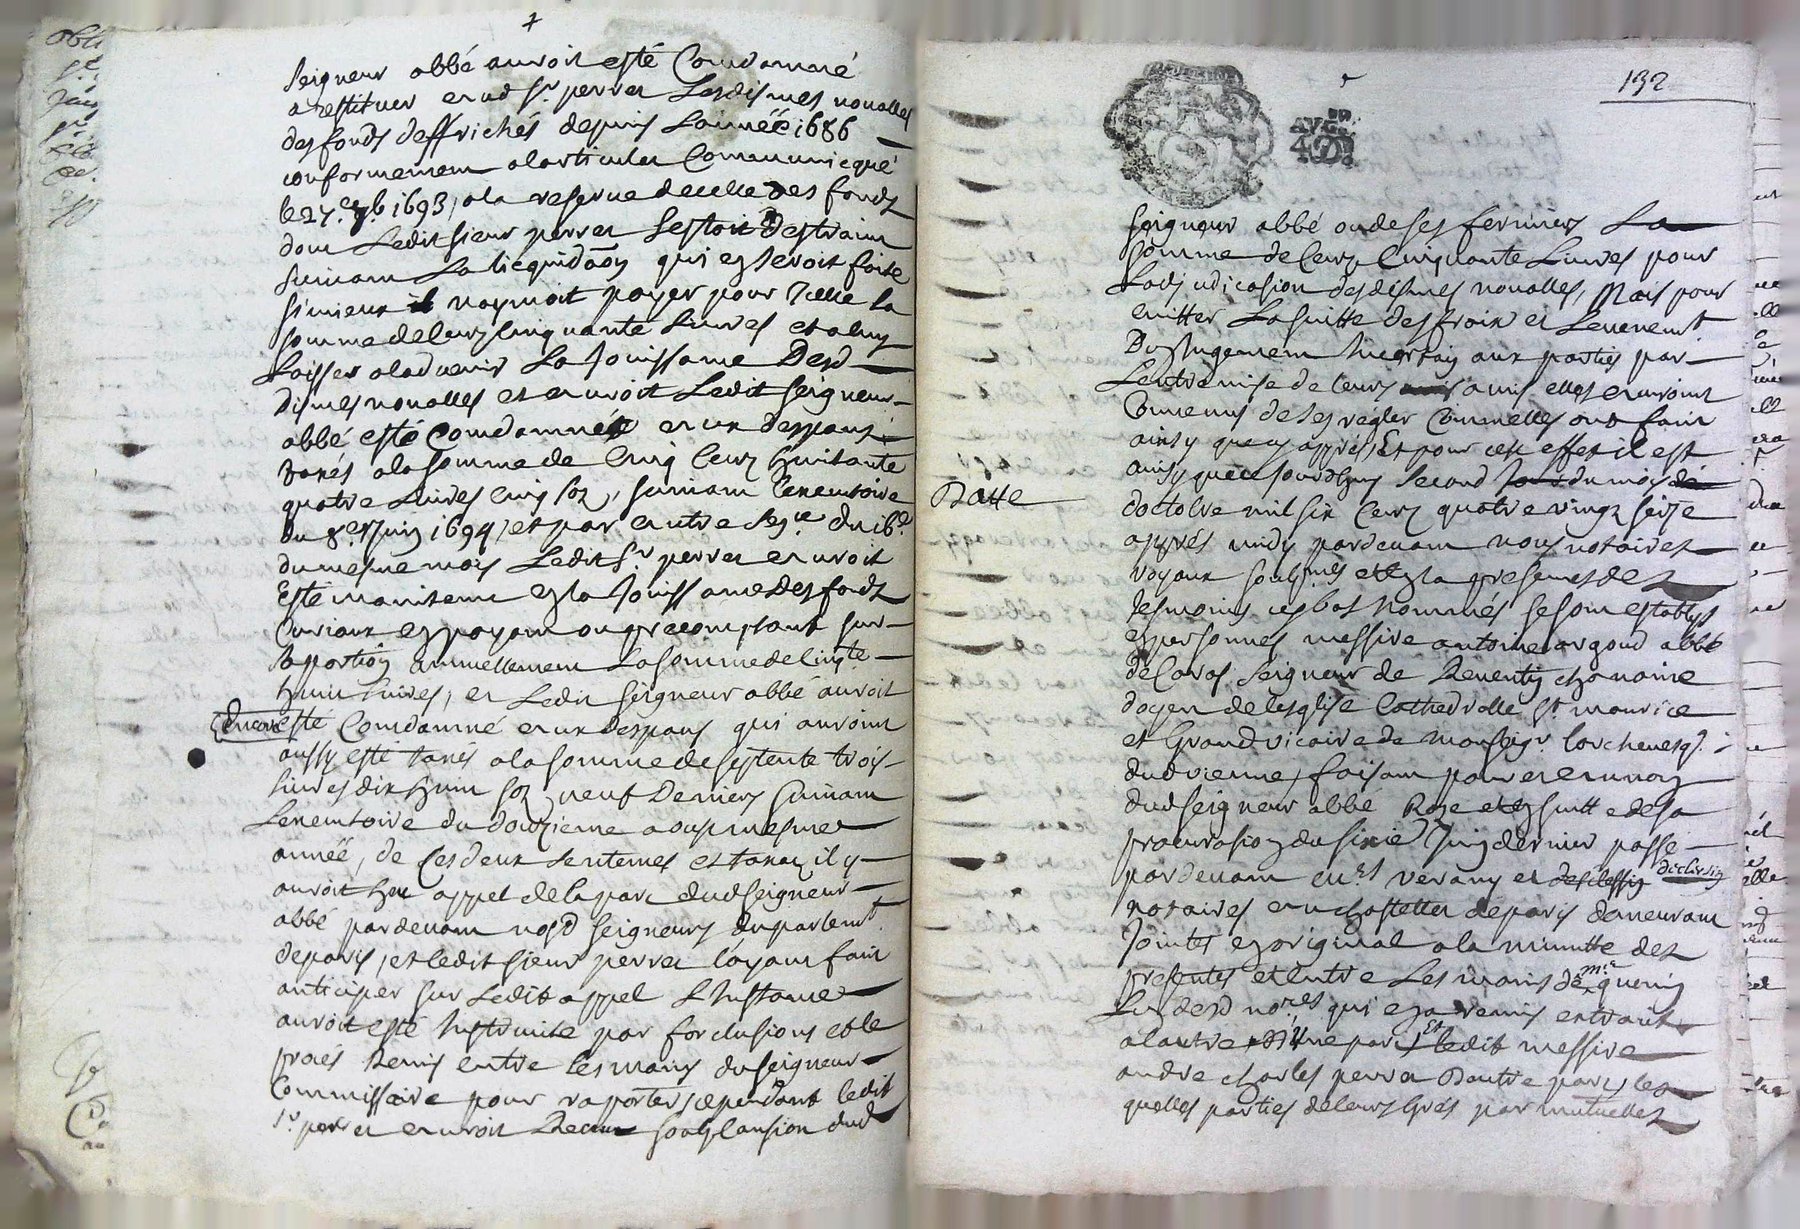 seigneur abbé auroit esté Condamné
a restituer aud Sr perret Lesdismes novalles
des fonds deffrichés depuis Lannéé 1686
conformement alarticulat Communicqué
le 27e 7b 1693, ala reserve de celle des fonds
dont Ledit sieur perret sestoit
suivant La licquidaõn qui en seroit faite
si mieux il naymoit payer pour Icelle la
somme de Cent Cinquante Livres et a luy
Laisser aladvenir La Jouissance Desd
dismes novalles et auroit Ledit seigneur
abbé esté Condamné aux despans
taxés ala somme de Cinq Cens huitante
quatre Livres Cinq solz, suivant Lexecutoire
du 8e Juin 1694, et par autre du 16e
du mesme mois Ledit Sr perret auroit
Esté maintenu en la Jouissance Des fonds
Curiaux en payant ou precomptant sur
sa portion annuellement La somme de
huit Livres, et Ledit seigneur abbé auroit
Encore
esté Condamné aux Despans qui auroint
aussy esté taxés ala somme de septente trois
livres dix huit solz neuf Deniers suivant
Lexecutoire du douzieme aoust mesme
année, de Ces deux sentences et taxaz il y
auroit heu appel de la part dud seigneur
abbé pardevant nosd seigneurs du parlemt
de paris, et ledit sieur perret layant fait
anticiper sur Ledit appel Linstance
auroit esté Instruite par forclusions et le
procés Remis entre les mains du seigneur
Commissaire pour raporter, cependant ledit
Sr perret auroit Receu soubz Cansion dud
132
seigneur abbé ou de ses fermiers La
somme de Cent Cinquante Livres pour
Ladjudication des dismes novalles, Mais pour
eviter La suitte des frais et Levenemt
Du Jugement Incertain aux parties par
Lentremise de leurs amis elles auroint
Convenus de ses regler Comme elles ont fait
ainsy que cy appres, Et pour cest effet il est
Datte
ainsy que ce jourdhuy second du mois
doctobre mil six Cens quatre vingt seize
apprés midy pardevant nous notaires
royaux soubznés et en la presence des
tesmoins cy bas Nommés se sont establys
en personnes messire antoine argoud abbé
de Seigneur de Reventin chanoine
doyen de lesglise Cathedralle St maurice
et Grand vicaire de Monseigr Larchevesq
dud vienne, faisant pour et au nom
dud seigneur abbé Roze et en suitte de sa
procuration du sixie Juin dernier passe
pardevant verany et desclessin
notaires au chastellet de paris demeurant
Jointe en original ala minutte des
presentes et entre Les mains de me guerin
Lun desd nores qui en a remis extrait
alautre Dune part, Et Ledit messire
andre charles perret Dautre part, les
quelles parties de leurs Grés par mutuelles